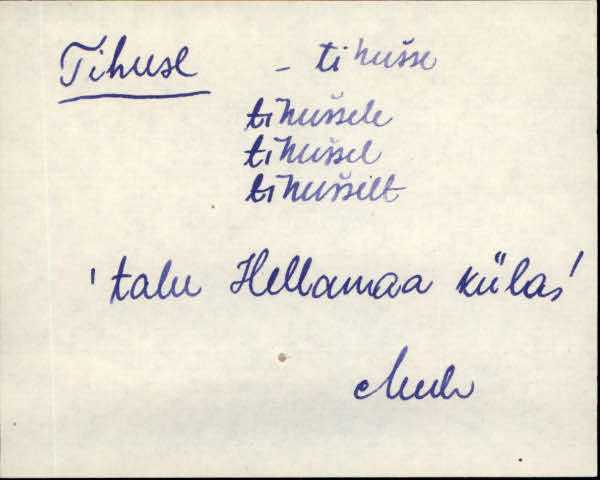 Tihuse – tihušse
tihuššele
tihuššel
tihuššelt
'talu Hellamaa külas'
Muh